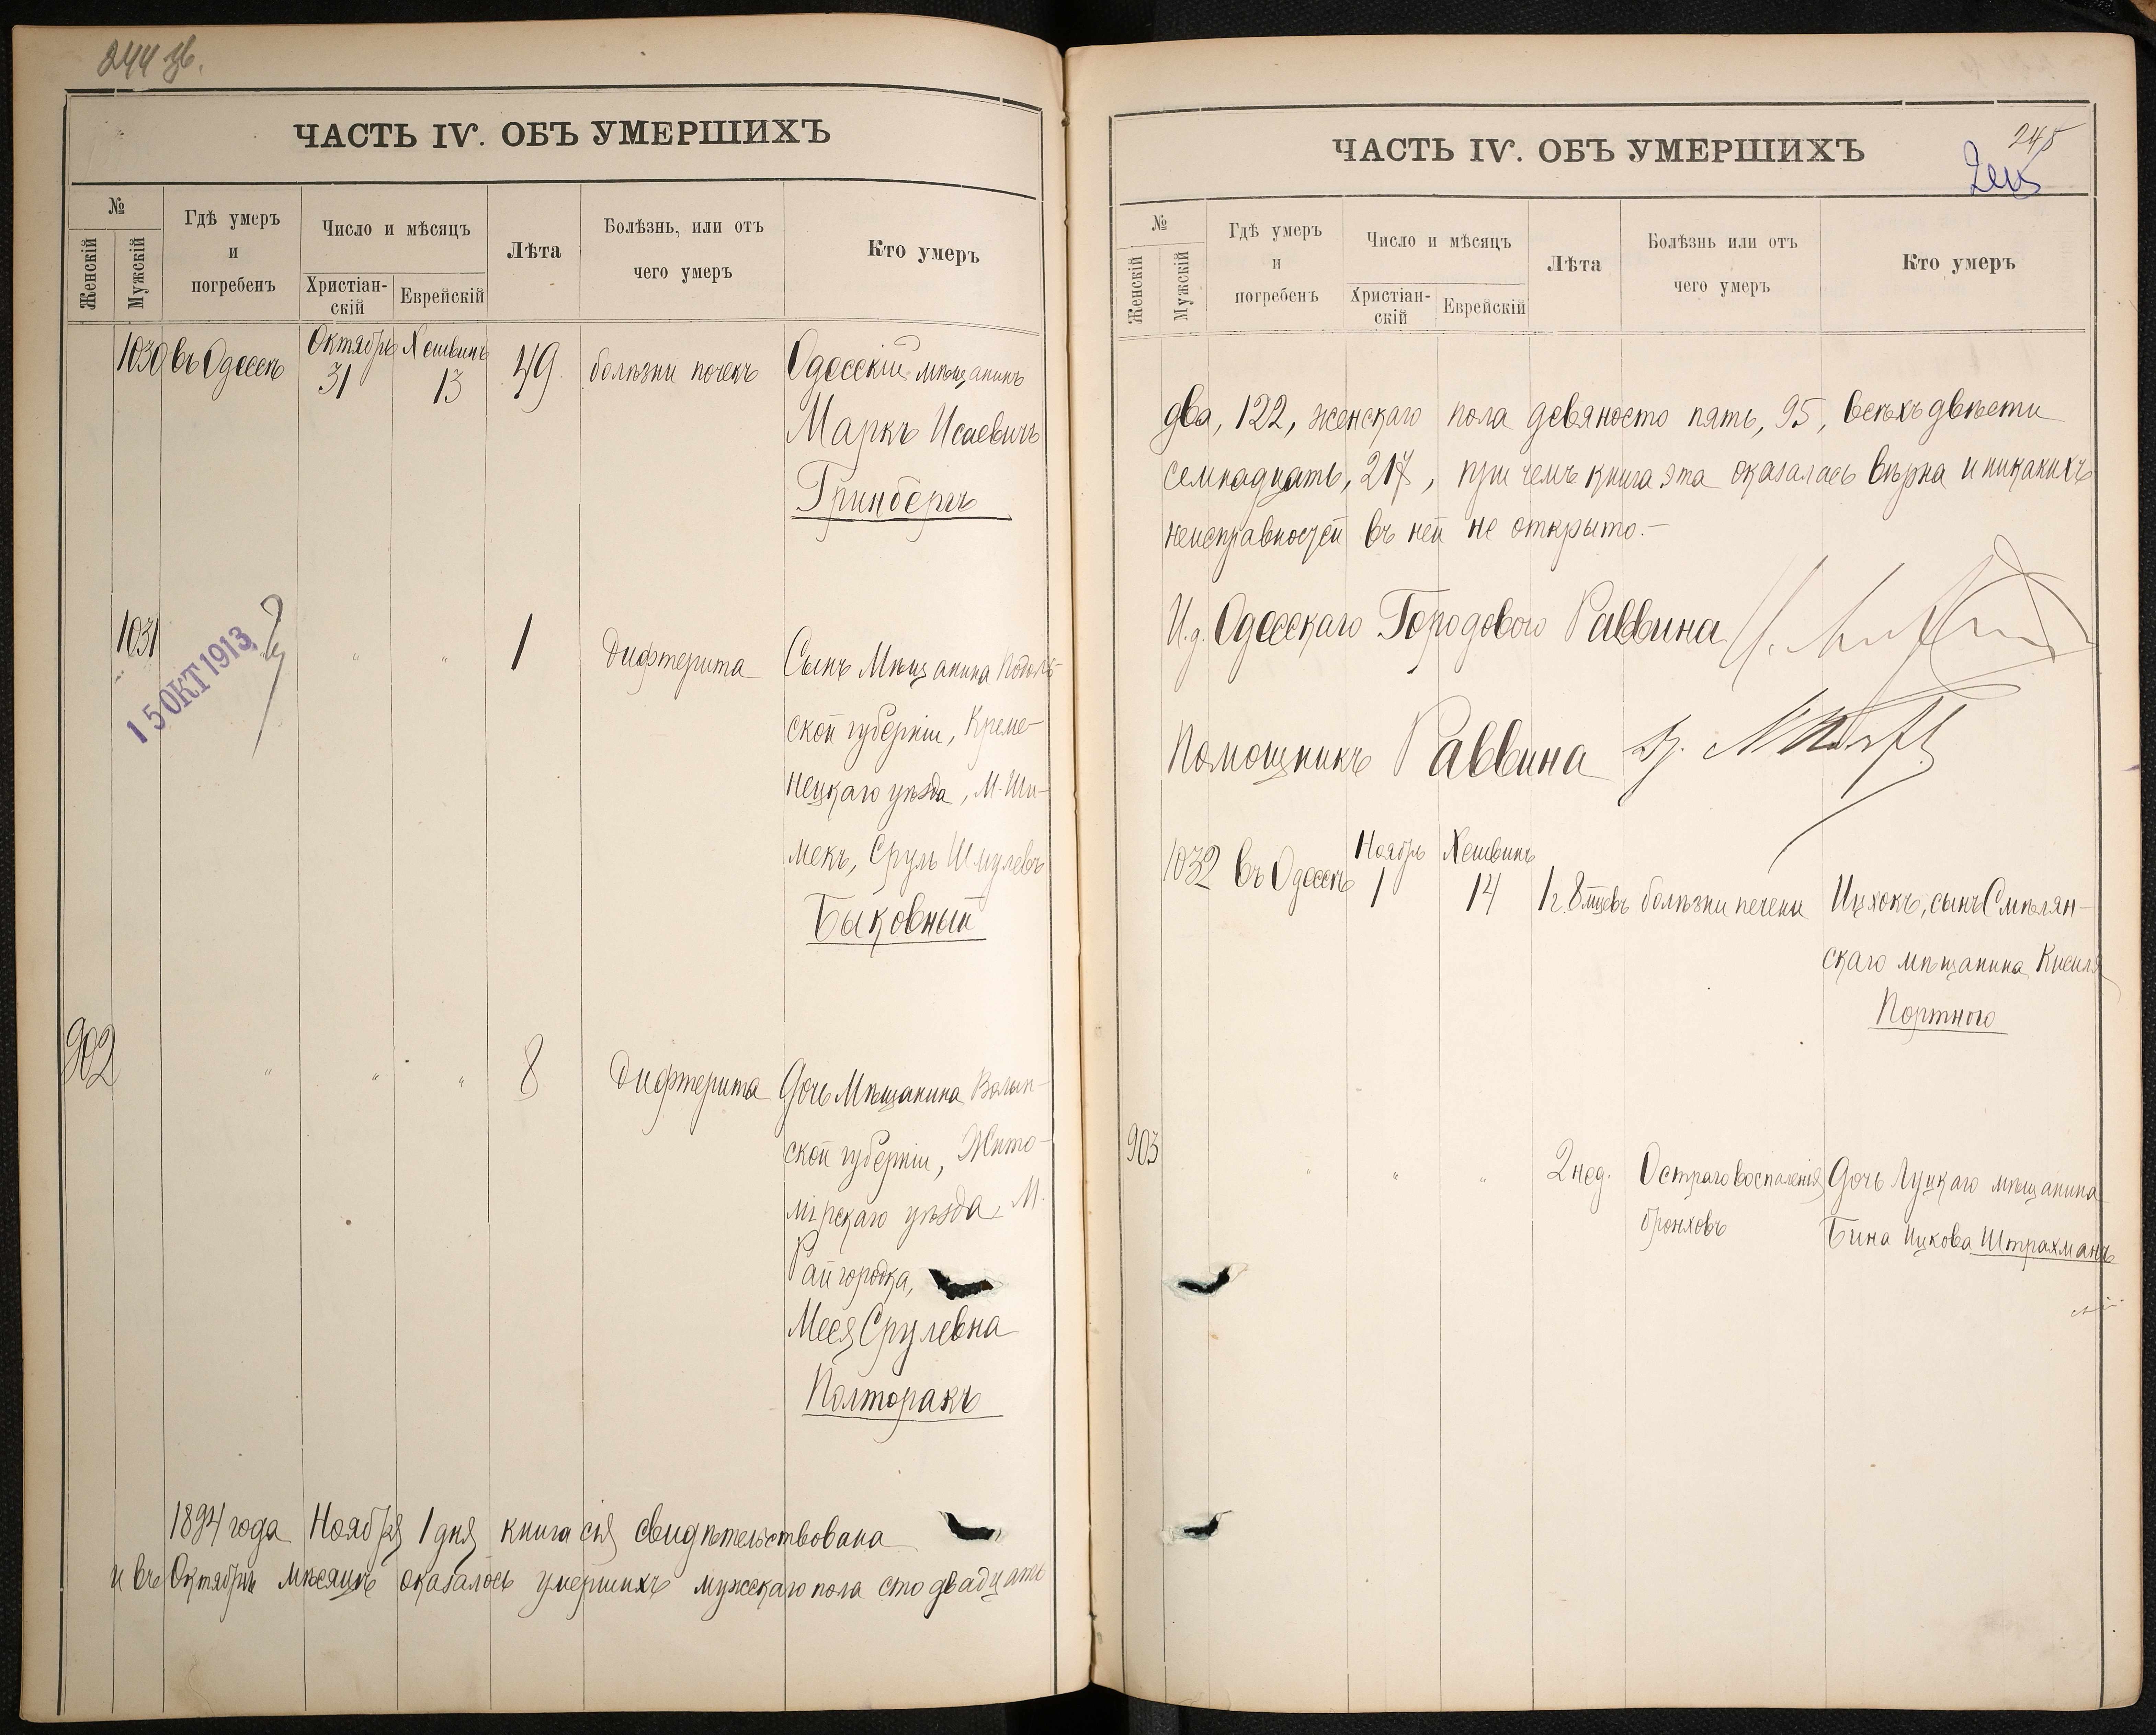 244 зв.
ЧАСТЬ IV. ОБЪ УМЕРШИХЪ
№
Женскій
Мужскій
Гдѣ умеръ
и
погребенъ
Число и мѣсяцъ
Христіан-
скій
Еврейскій
Лѣта
Болѣзнь, или отъ
чего умеръ
Кто умеръ
1030 въ Одессѣ Октябрь 31 Хешвинъ 13 49 болѣзни почекъ Одесскій мѣщанинъ
Маркъ Исаевичъ
Гринбергъ
1031 " " 1 Дифтерита Сынъ Мѣщанина Подоль-
ской губерніи, Креме-
нецкаго уѣзда, М. Шу-
мекъ, Сруль Шмулевъ
Быковный
15 ОКТ 1913
902 " " " 8 Дифтерита Дочь Мѣщанина Волын-
ской губерніи, Жито-
мірскаго уѣзда, М.
Райгородка,
Мееня Срулевна
Полторакъ
1894 года Ноября 1 дня книга сія свидѣтельствована
и въ Октябрѣ мѣсяцѣ оказалось умершихъ мужскаго пола сто двадцать
ЧАСТЬ IV. ОБЪ УМЕРШИХЪ
245
№
Женскій
Мужскій
Гдѣ умеръ
и
погребенъ
Число и мѣсяцъ
Христіан-
скій
Еврейскій
Лѣта
Болѣзнь или отъ
чего умеръ
Кто умеръ
два, 122, женскаго пола девяносто пять, 95, всѣхъ двѣсти
семнадцать, 217, при чемъ книга эта оказалась вѣрна и никакихъ
неисправностей въ ней не открыто.—
И.д. Одесскаго Городового Раввина
Помощникъ Раввина
1032 въ Одессѣ Ноябрь 1 Хешвинъ 14 1 г. 8 мцевъ болѣзни печени Ицхокъ, сынъ Смѣлян-
скаго мѣщанина Кисиля
Портного
903 " " " 2 нед. Остраго воспаленія Дочь Луцкаго мѣщанина
бронховъ Бина Ицкова Штрахманъ